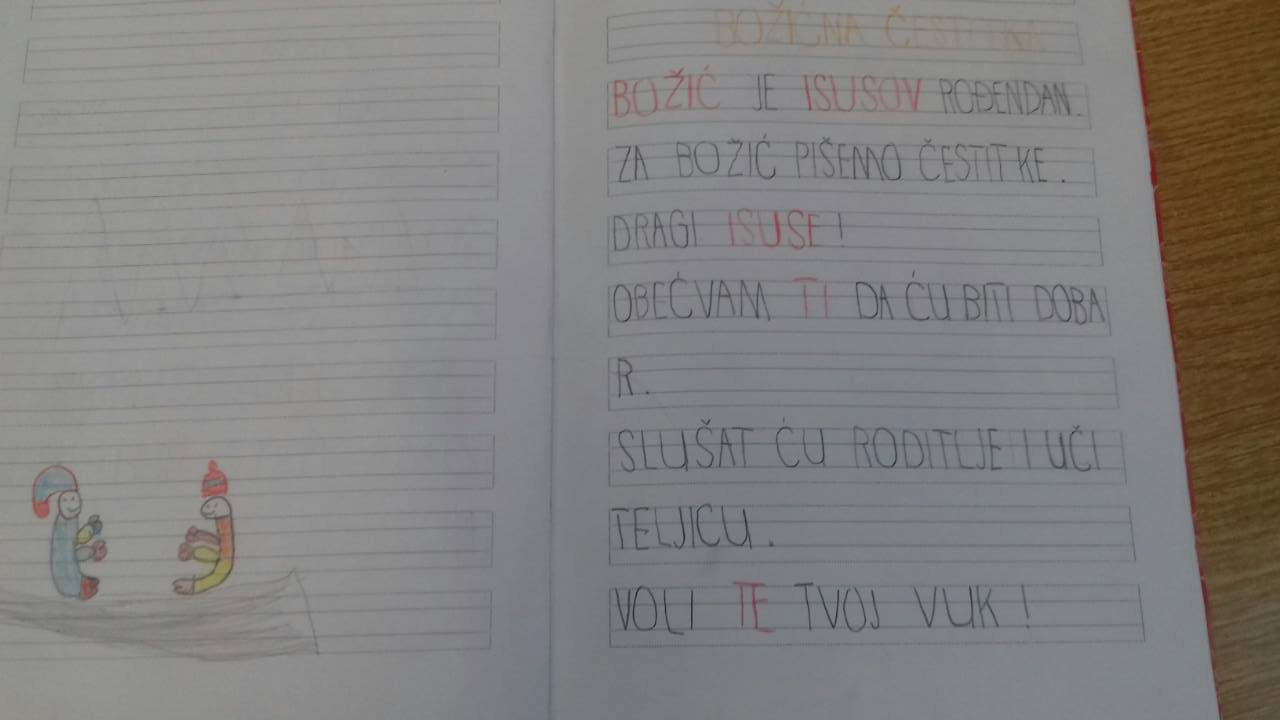 BOŽIĆNA ČESTITKA
BOŽIĆ JE ISUSOV ROĐENDAN.
ZA BOŽIĆ PIŠEMO ČESTITKE.
DRAGI ISUSE!
OBEĆVAM TI DA ĆU BITI DOBA
R.
SLUŠAT ĆU RODITLJE I UČI
TELJICU.
VOLI TE TVOJ VUK!